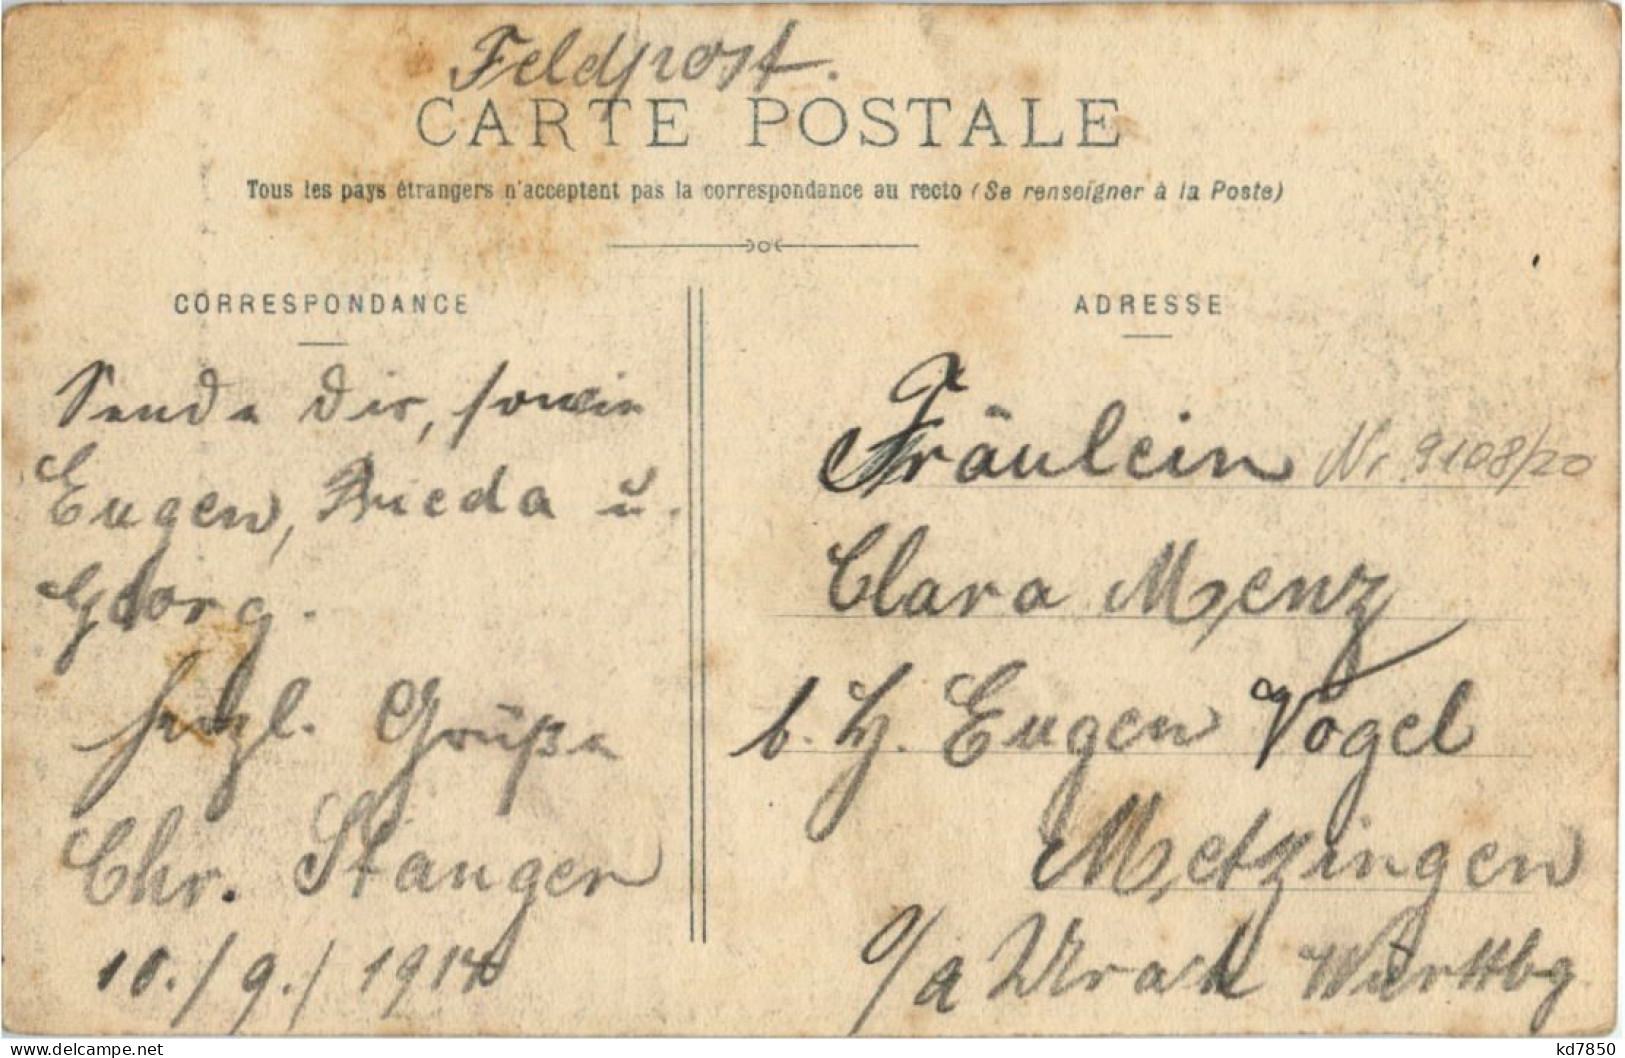 Feldpost.
CARTE POSTALE
Tous les pays étrangers n'acceptent pas la correspondance au recto (Se renseigner à la Poste)
CORRESPONDANCE
Sende Dir, sowie
Eugen, Frieda u.
Georg.
herzl. Grüße
Chr. Stanger
10./9./1914
ADRESSE
Fräulein Nr. 9108/20
Clara Menz
b. H. Eugen Vogel
Metzingen
O/a Urach Württbg
kd7850